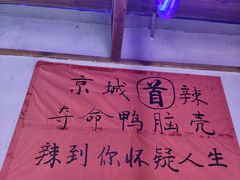 京城首辣
夺命鸭脑壳
辣到你怀疑人生